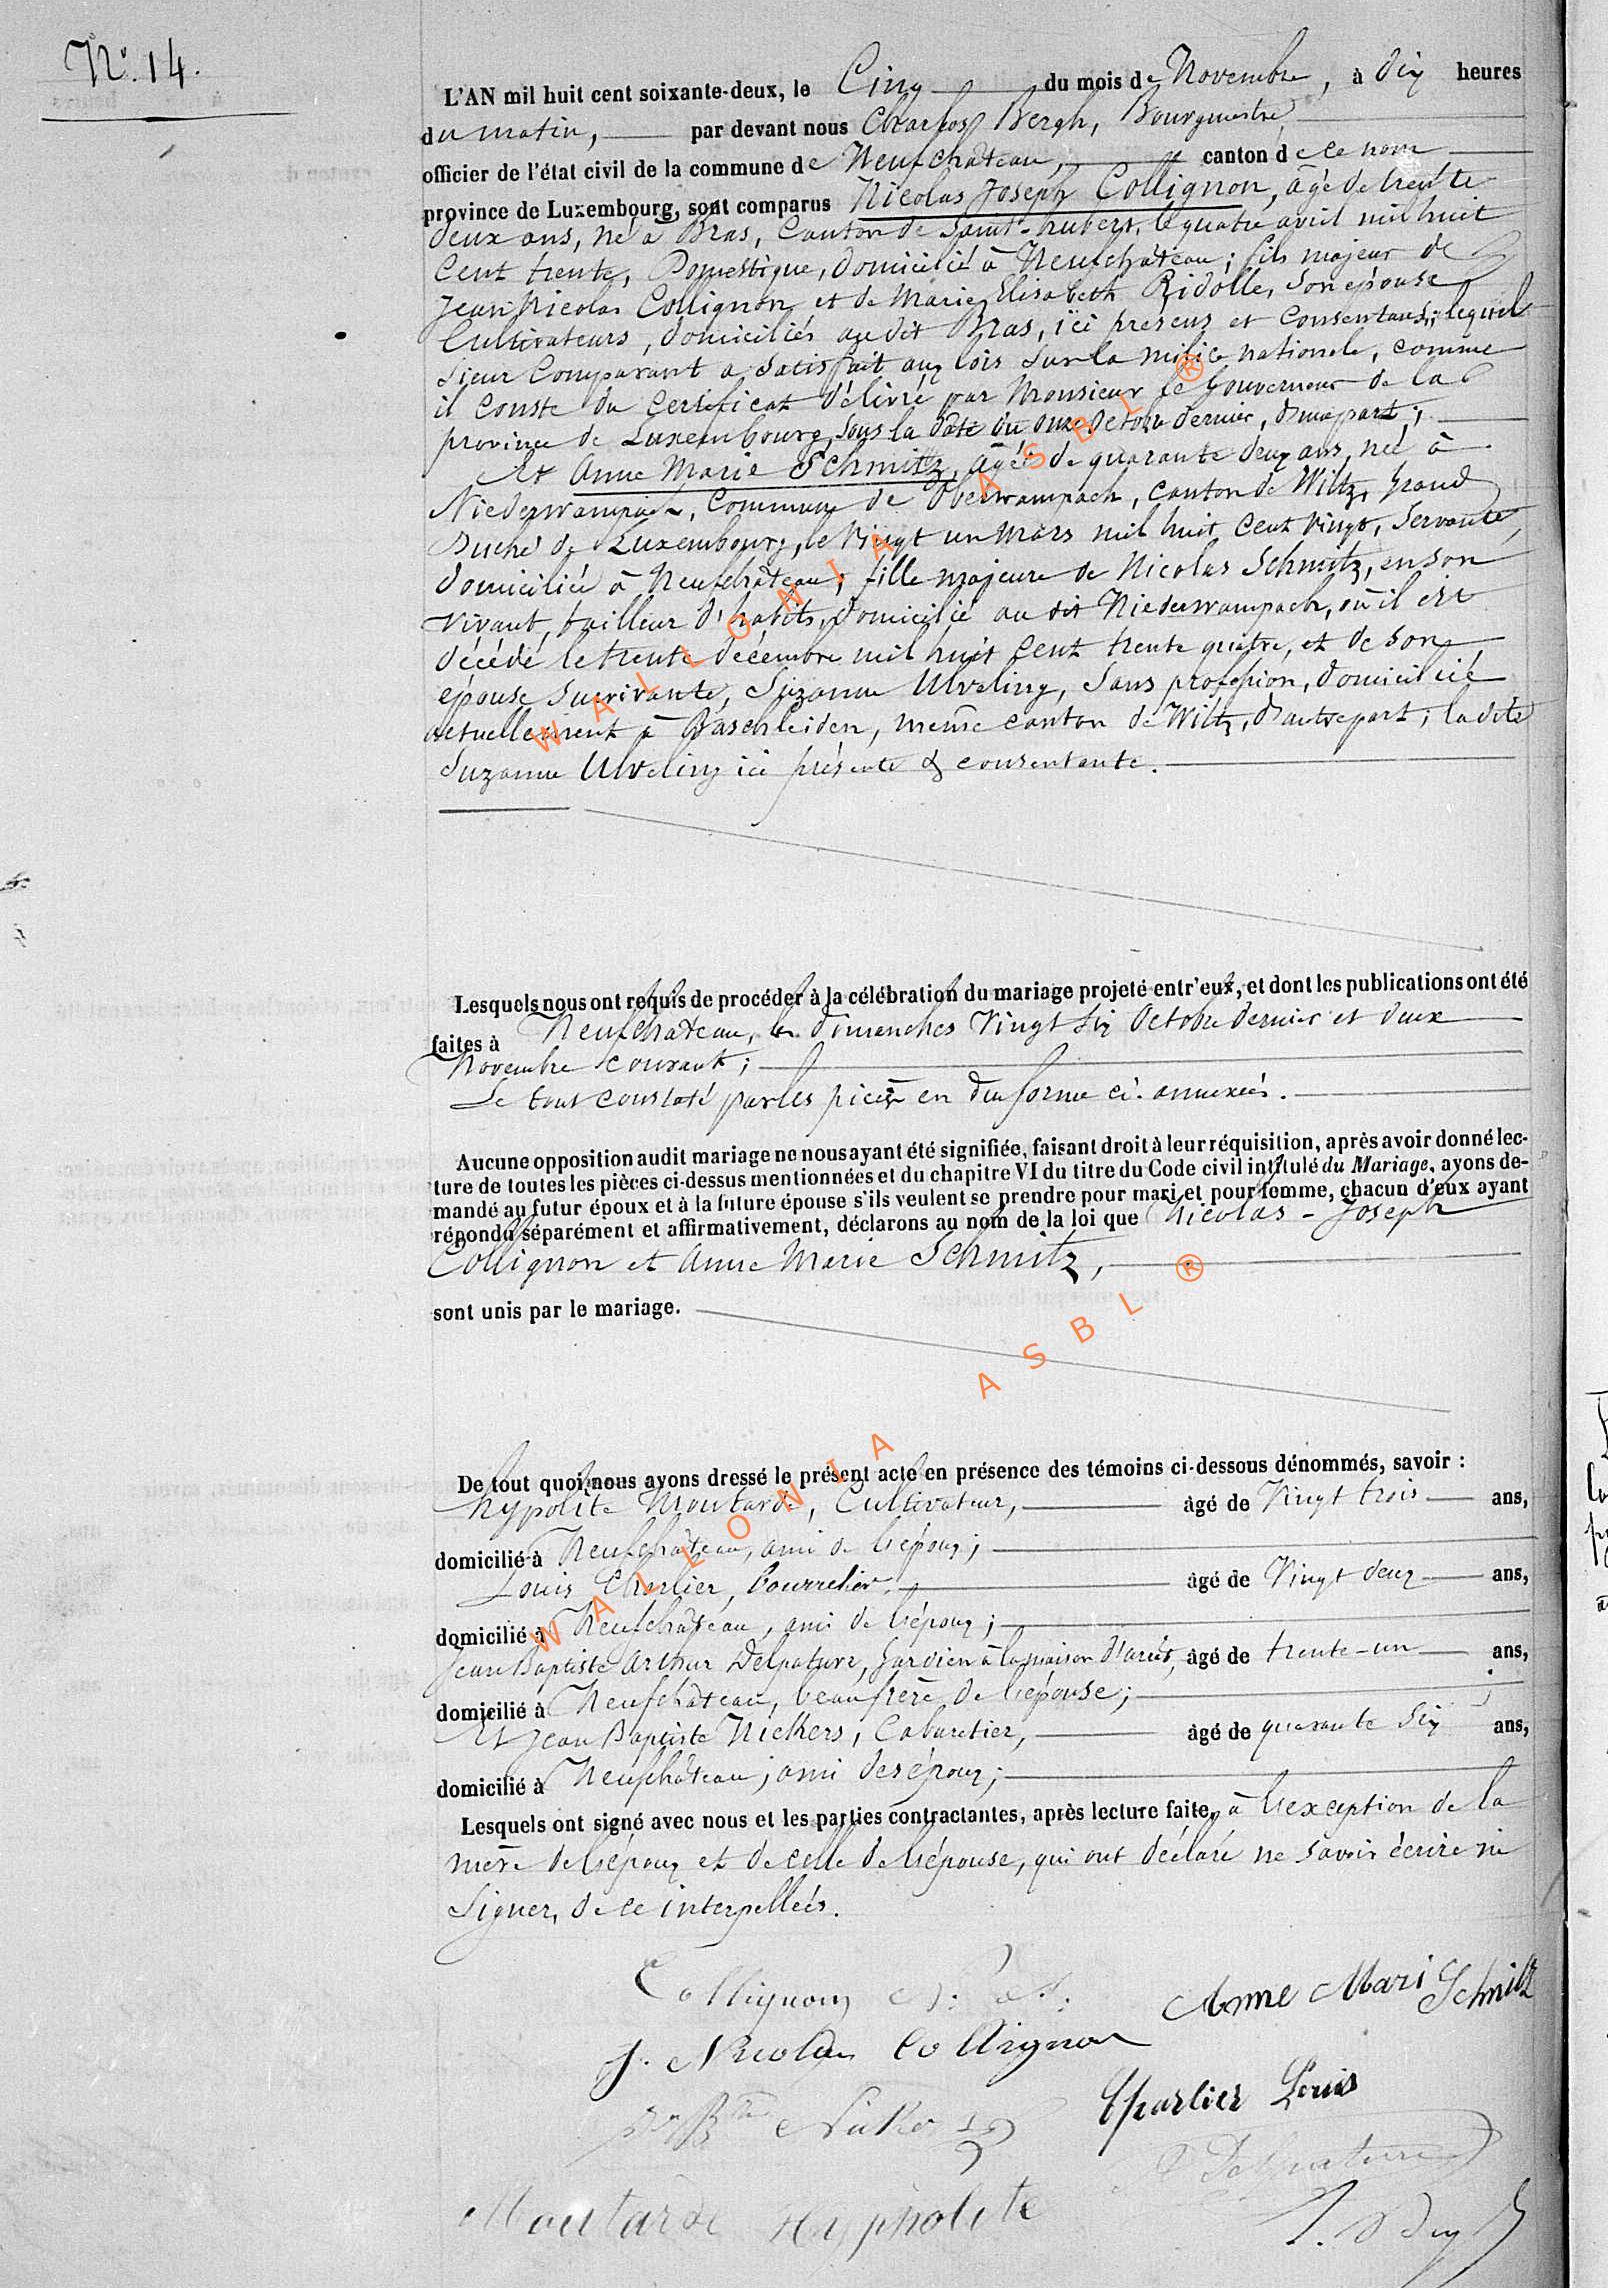 N°. 14.
L'AN mil huit cent soixante-deux, le Cinq du mois de Novembre, à dix heures
du matin, par devant nous Charles Bergh, Bourgmestre
officier de l'état civil de la commune de Neufchâteau, canton de ce nom
province de Luxembourg, sont comparus Nicolas Joseph Collignon, âgé de trente
deux ans, né à Bras, Canton de Saint-hubert, le quatre avril mil huit
Cent trente, Domestique, domicilié à Neufchâteau; fils majeur de
Jean Nicolas Collignon et de Marie Elisabeth Ridolle, son épouse
Cultivateurs, domiciliés au dit Bras, ici présens et Consentans; lequel
Sieur Comparant a satisfait aux lois sur la milice nationale, comme
il conste du Certificat délivré par Monsieur le Gouverneur de la
province de Luxembourg, sous la date du onze octobre dernier, d'une part;
Et Anne Marie Schmitz, âgée de quarante deux ans, née à
Niederwampach, Commune de Oberwampach, canton de Wiltz, Grand
Duché de Luxembourg, le Vingt un Mars mil huit Cent vingt, Servante,
domiciliée à Neufchâteau; fille majeure de Nicolas Schmitz, en son
vivant, tailleur d'habits, domicilié au dit Niederwampach, où il est
décédé le trente décembre mil huit Cent trente quatre, et de son
épouse survivante, Suzanne Ulveling, Sans profession, domiciliée
actuellement à Baschleiden, même canton de Wiltz, d'autre part; la dite
Suzanne Ulveling ici présente & consentante.
Lesquels nous ont requis de procéder à la célébration du mariage projeté entr'eux, et dont les publications ont été
faites à Neufchâteau, les dimanches Vingt Six Octobre dernier et deux
Novembre courant;
Le tout constaté par les pièces en due forme ci-annexées.
Aucune opposition audit mariage ne nous ayant été signifiée, faisant droit à leur réquisition, après avoir donné lec-
ture de toutes les pièces ci-dessus mentionnées et du chapitre VI du titre du Code civil intitulé du Mariage, ayons de-
mandé au futur époux et à la future épouse s'ils veulent se prendre pour mari et pour femme, chacun d'eux ayant
répondu séparément et affirmativement, déclarons au nom de la loi que Nicolas - Joseph
Collignon et Anne Marie Schmitz,
sont unis par le mariage.
De tout quoi nous ayons dressé le présent acte en présence des témoins ci-dessous dénommés, savoir :
hypolite Moutarde, Cultivateur, âgé de Vingt trois ans,
domicilié à Neufchâteau, ami de l'époux;
Louis Charlier, bourrelier, âgé de Vingt deux ans,
domicilié à Neufchâteau, ami de l'époux;
Jean Baptiste Arthur Delpature, gardien à la maison d'arrêt, âgé de trente-un ans,
domicilié à Neufchâteau, beau frère de l'épouse;
Et Jean Baptiste Nickers, Cabaretier, âgé de quarante Six ans,
domicilié à Neufchâteau, ami des époux;
Lesquels ont signé avec nous et les parties contractantes, après lecture faite, à l'exception de la
mère de l'époux et de celle de l'épouse, qui ont déclaré ne savoir écrire ni
Signer, de ce interpellées.
Collignon N. J. Anne Mari Schmitz
J. Nicolas Collignon
Charlier Louis
Jn Bte Nickers
Delpature
Moutarde Hyppholite
WALLONIA ASBL ®
WALLONIA ASBL ®